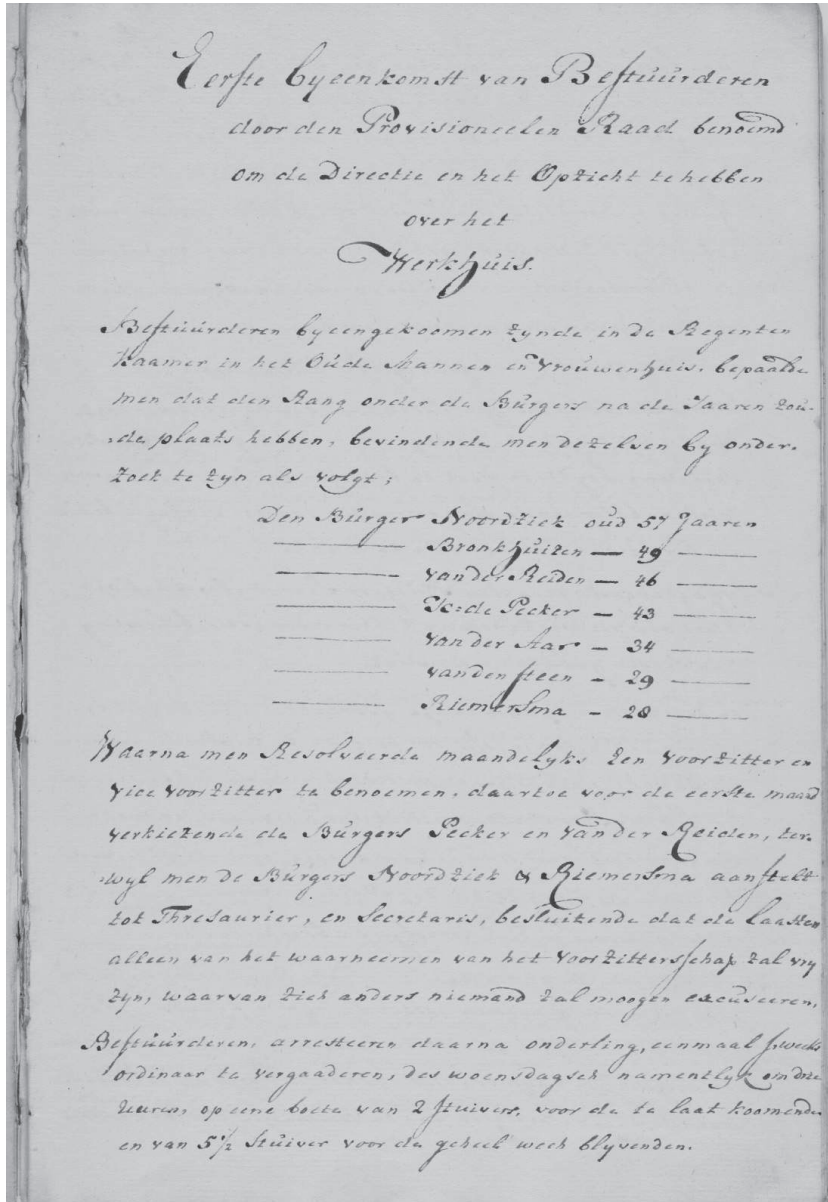 Eerste byeenkomst van Bestuurderen
door den Provisioneelen Raad benoemd
om de Directie en het Opzicht te hebben
over het
Werkhuis.
Bestuurderen byeengekoomen zynde in de Regenten
Kaamer in het Oude Mannen en Vrouwenhuis, bepaalde
men dat den Rang onder de Burgers na de Jaaren zou-
de plaats hebben, bevindende men dezelven by onder-
zoek te zyn als volgt;
Den Burger Noordziek oud 57 Jaaren
——— Bronkhuizen — 49 ———
——— van der Reiden — 46 ———
——— de Pecker — 43 ———
——— van der Aar — 34 ———
——— vanden Steen — 29 ———
——— Riemersma — 28 ———
Waarna men Resolveerde maandelyks een voorzitter en
vice voorzitter te benoemen, daartoe voor de eerste maand
verkiezende de Burgers Pecker en vander Reiden, ter-
wyl men de Burgers Noordziek & Riemersma aanstelt
tot Thresaurier, en Secretaris, besluitende dat de laasten
alleen van het waarneemen van het voorzittersschap zal vry
zyn, waarvan zich anders niemand zal moogen excuseeren,
Bestuurderen, arresteeren daarna onderling, eenmaal s'weeks
ordinair te vergaaderen, des woensdagsch namentlyk om drie
uuren, op eene boete van 2 stuivers, voor de te laat koomende
en van 5 1/2 Stuiver voor de geheel wech blyvenden.